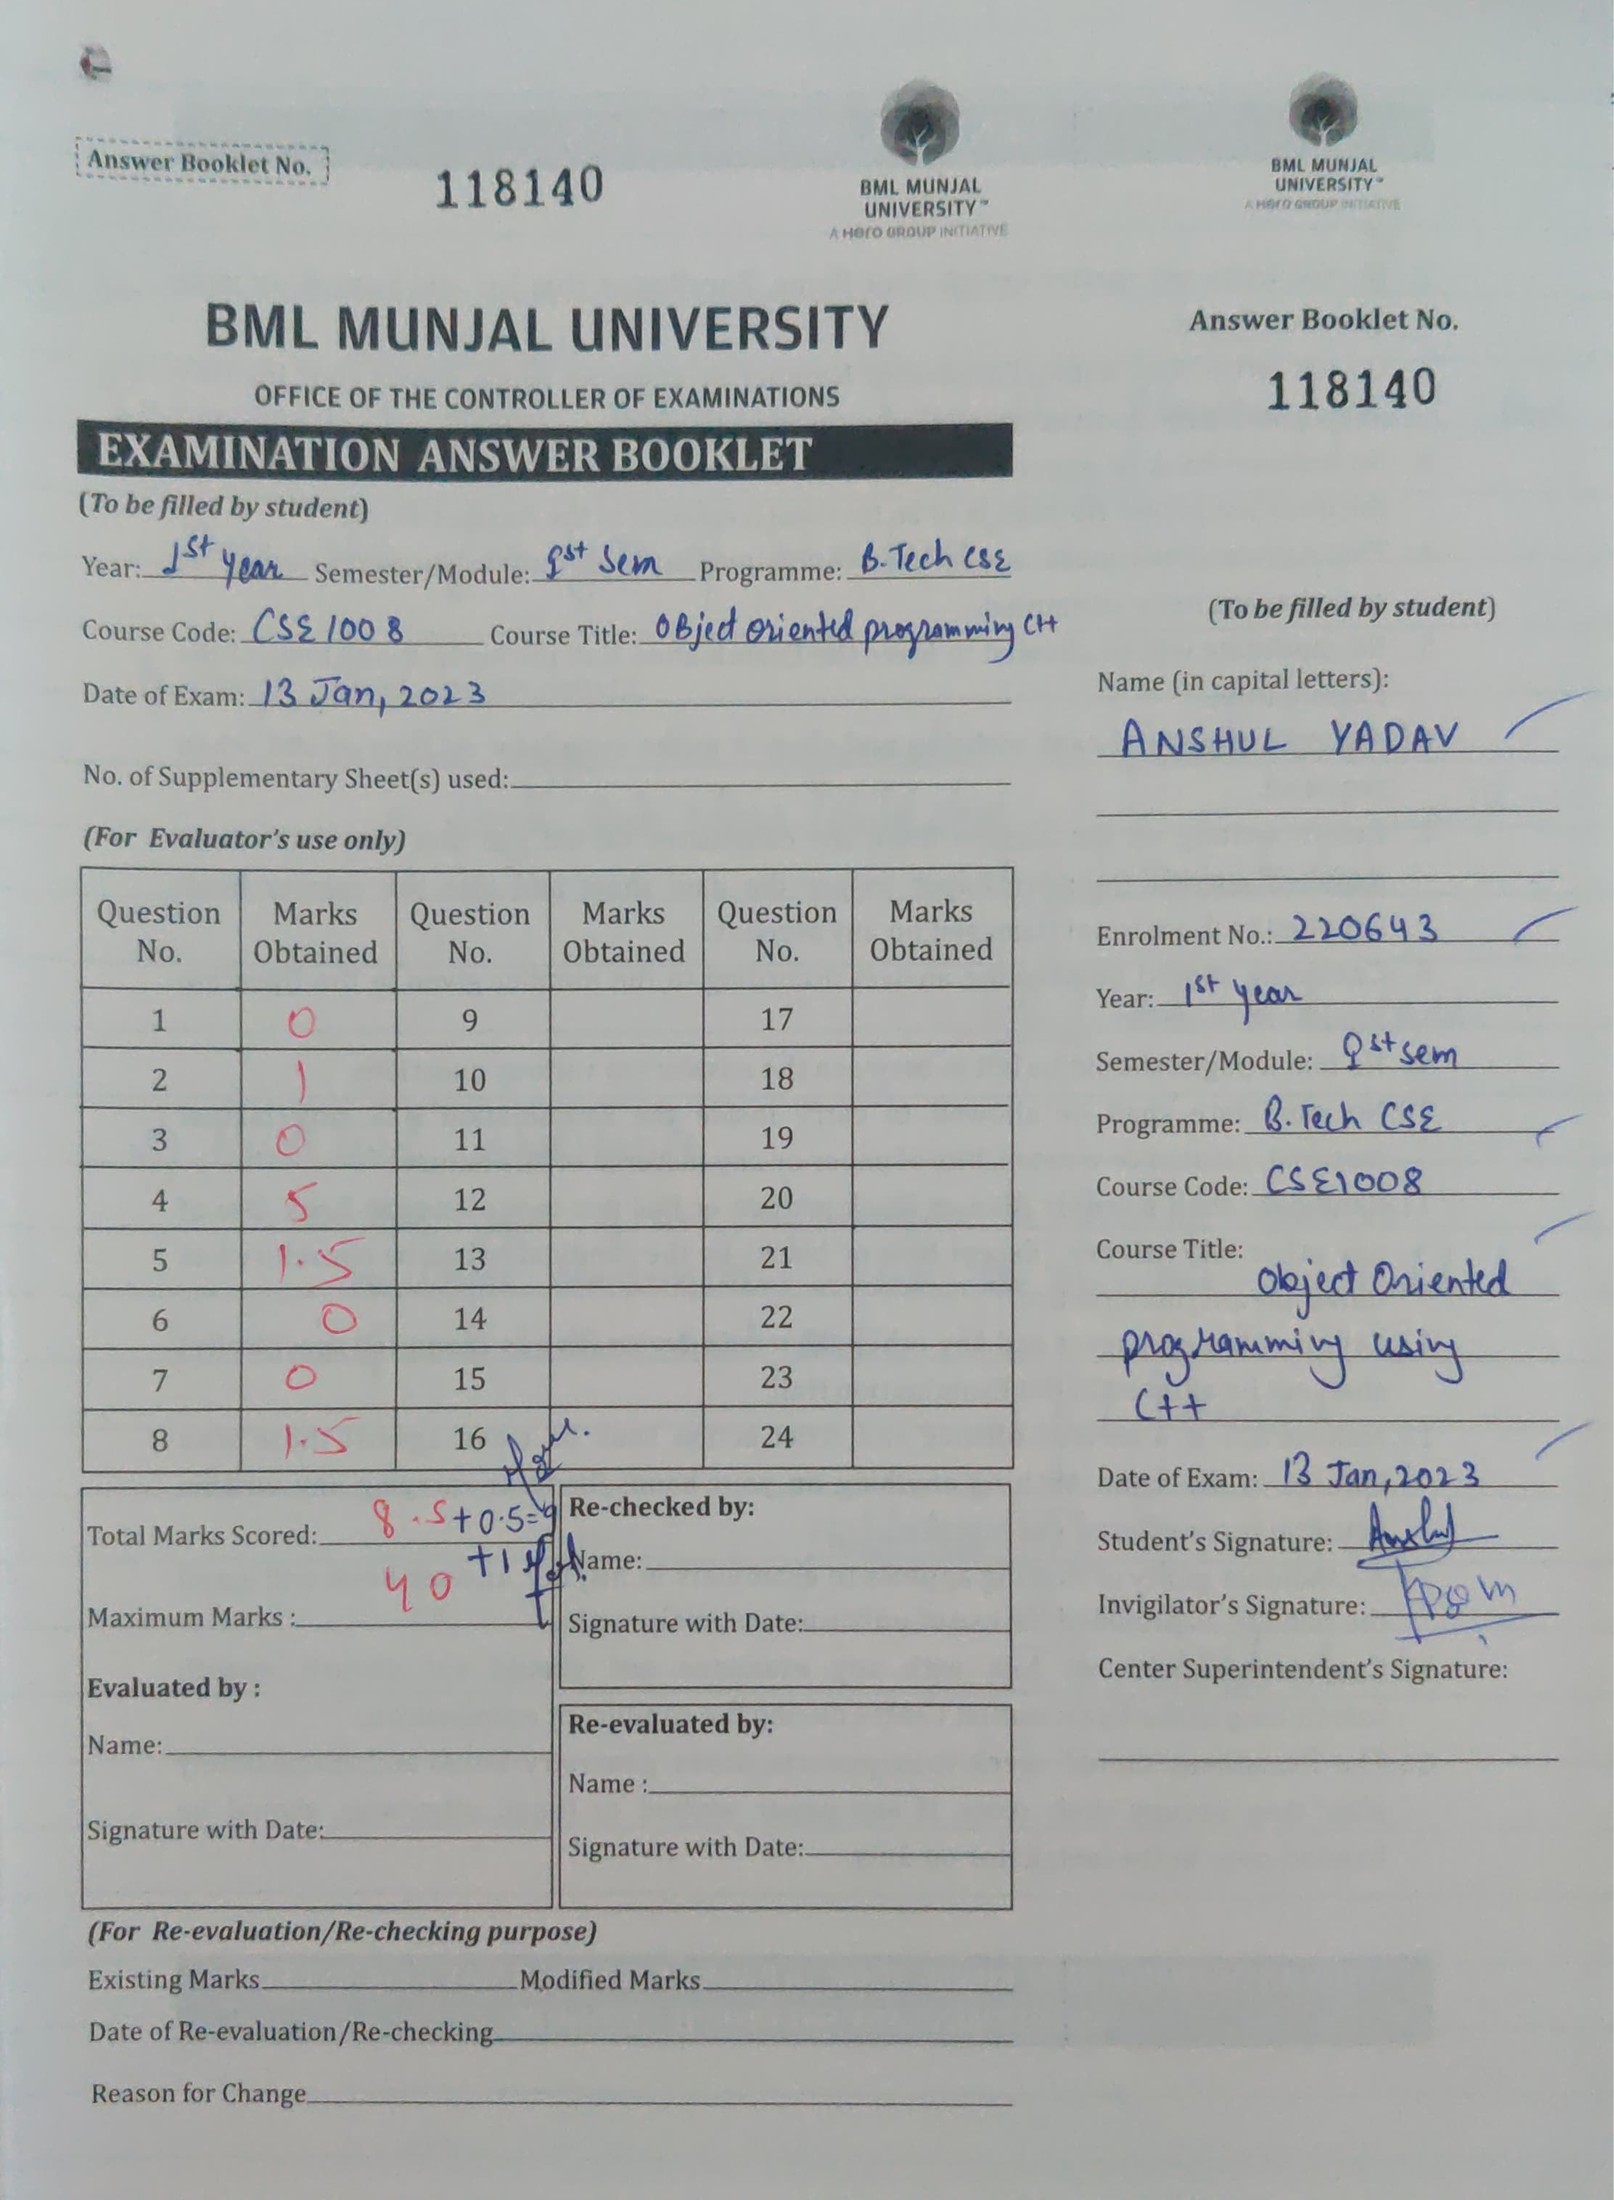 Answer Booklet No.
118140
BML MUNJAL
UNIVERSITY™
A Hero GROUP INITIATIVE
BML MUNJAL
UNIVERSITY™
A Hero GROUP INITIATIVE
BML MUNJAL UNIVERSITY
OFFICE OF THE CONTROLLER OF EXAMINATIONS
EXAMINATION ANSWER BOOKLET
(To be filled by student)
Year: 1st year Semester/Module: Ist Sem Programme: B.Tech CSE
Course Code: CSE1008 Course Title: OBject oriented programming C++
Date of Exam: 13 Jan, 2023
No. of Supplementary Sheet(s) used:
(For Evaluator's use only)
Question No. Marks Obtained Question No. Marks Obtained Question No. Marks Obtained
1 0 9 17
2 1 10 18
3 0 11 19
4 5 12 20
5 1.5 13 21
6 0 14 22
7 0 15 23
8 1.5 16 24
Total Marks Scored: 8.5+0.5=9
+1
Maximum Marks : 40
Evaluated by :
Name:
Signature with Date:
Re-checked by:
Name:
Signature with Date:
Re-evaluated by:
Name :
Signature with Date:
(For Re-evaluation/Re-checking purpose)
Existing Marks Modified Marks
Date of Re-evaluation/Re-checking
Reason for Change
Answer Booklet No.
118140
(To be filled by student)
Name (in capital letters):
ANSHUL YADAV
Enrolment No.: 220643
Year: 1st year
Semester/Module: Ist sem
Programme: B.Tech CSE
Course Code: CSE1008
Course Title:
Object Oriented
programming using
C++
Date of Exam: 13 Jan, 2023
Student's Signature: Anshul
Invigilator's Signature:
Center Superintendent's Signature: